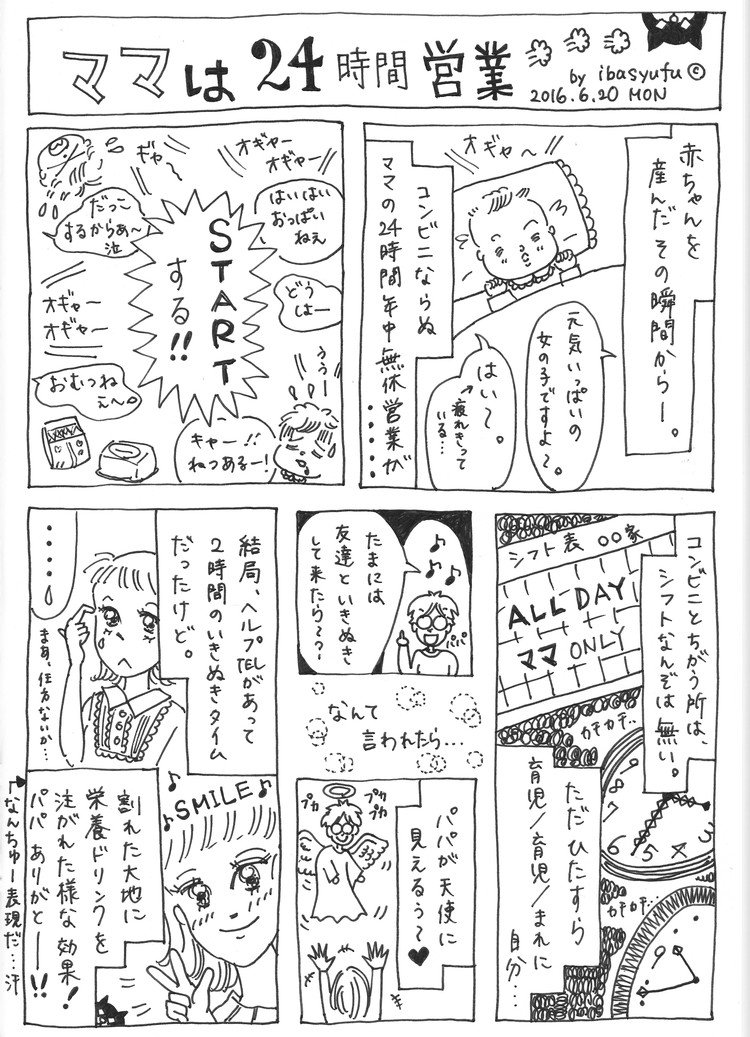 ママは24時間営業
by ibasyufu©
2016.6.20 MON
赤ちゃんを
産んだその瞬間からー。
オギャ〜
元気いっぱいの
女の子ですよ〜。
はい〜。
疲れきって
いる…
コンビニならぬ
ママの24時間年中無休営業が……
オギャー
オギャー
ギャ〜
はいはい
おっぱい
ねえ
だっこ
するからあ〜
泣
START
する!!
どう
はー
オギャー
オギャー
うぅー
おむつね
え〜。
キャー!!
ねつあるー!
コンビニとちがう所は、
シフトなんぞは無い。
シフト表 〇〇家
ALL DAY
ママ ONLY
カチカチ…
ただひたすら
育児/育児/まれに
自分…
カチカチ…
12
3
4
5
6
7
8
9
たまには
友達といきぬき
して来たら〜?
パパ
なんて
言われたら…
パパが天使に
見えるぅ〜♥
プカ
プカ
プカ
プカ
結局、ヘルプTELがあって
2時間のいきぬきタイム
だったけど。
……
まあ、仕方ないか…
SMILE
割れた大地に
栄養ドリンクを
注がれた様な効果!
パパありがとーー!!
なんちゅー表現だ…汗